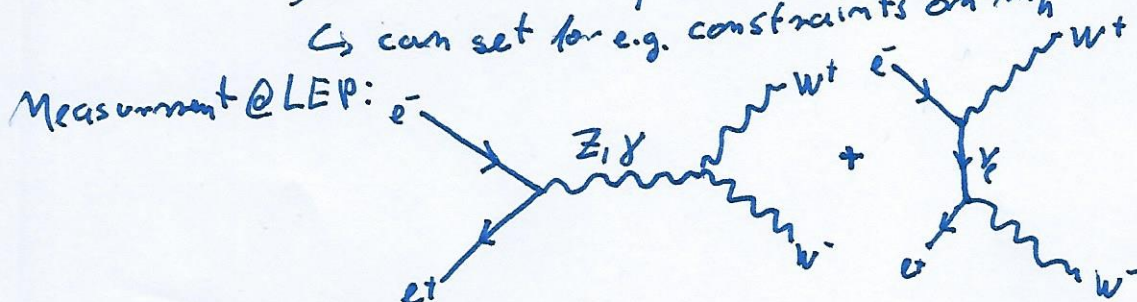 ↳ can set for e.g. constraints on m_h
Measurement @ LEP:
e⁻ Z, γ W⁺ + e⁻ W⁺
e⁺ W⁻ e⁺ W⁻